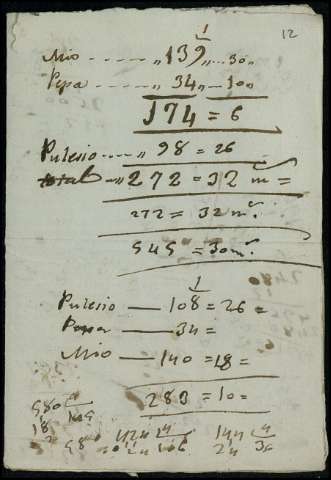 12
1
Mio „ 139 „ 30 „
Pepa „ 34 „ 10 „
174 = 6
Pulesio „ 98 = 26
total „ 272 = 32 m.ˢ =
272 = 32 m.ˢ
545 = 30 m.ˢ
1
Pulesio — 108 = 26 =
Pepa — 34 =
Mio — 140 = 18 =
283 = 10 =
580 4
18
98
144 4
24 36